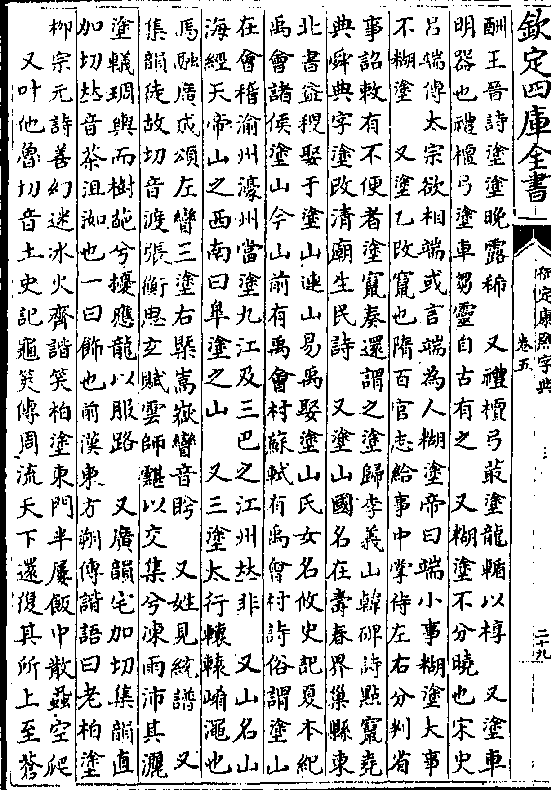 欽定四庫全書
御定康熙字典
卷五
二十九
酬王晉詩塗塗晚露稀　又禮檀弓菆塗龍輴以椁　又塗車
明器也禮檀弓塗車芻靈自古有之　又糊塗不分曉也宋史
呂端傳太宗欲相端或言端為人糊塗帝曰端小事糊塗大事
不糊塗　又塗乙改竄也隋百官志給事中掌侍左右分判省
事詔敕有不便者塗竄奏還謂之塗歸李義山韓碑詩點竄堯
典舜典字塗改清廟生民詩　又塗山國名在壽春界巢縣東
北書益稷娶于塗山連山易禹娶塗山氏女名攸史記夏本紀
禹會諸侯塗山今山前有禹會村蘇軾有禹會村詩俗謂塗山
在會稽渝州濠州當塗九江及三巴之江州𠀤非　又山名山
海經天帝山之西南曰臯塗之山　又三塗太行轘轅崤澠也
馬融廣成頌左矕三塗右槩嵩嶽矕音眄　又姓見統譜　又
集韻徒故切音渡張衡思玄賦雲師䨴以交集兮凍雨沛其灑
塗轙琱輿而樹葩兮擾應龍以服路　又廣韻宅加切集韻直
加切𠀤音茶沮洳也一曰飾也前漢東方朔傳諧語曰老柏塗
柳宗元詩善幻迷冰火齊諧笑柏塗東門半屢飯中散蝨空爬
又叶他魯切音土史記龜筴傳周流天下還復其所上至蒼